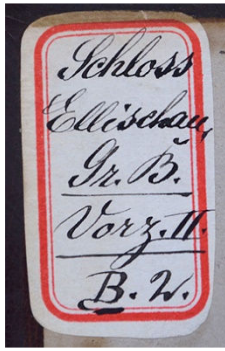 Schloss
Ellischau,
Gr. B.
Vorz. II.
B. 2.